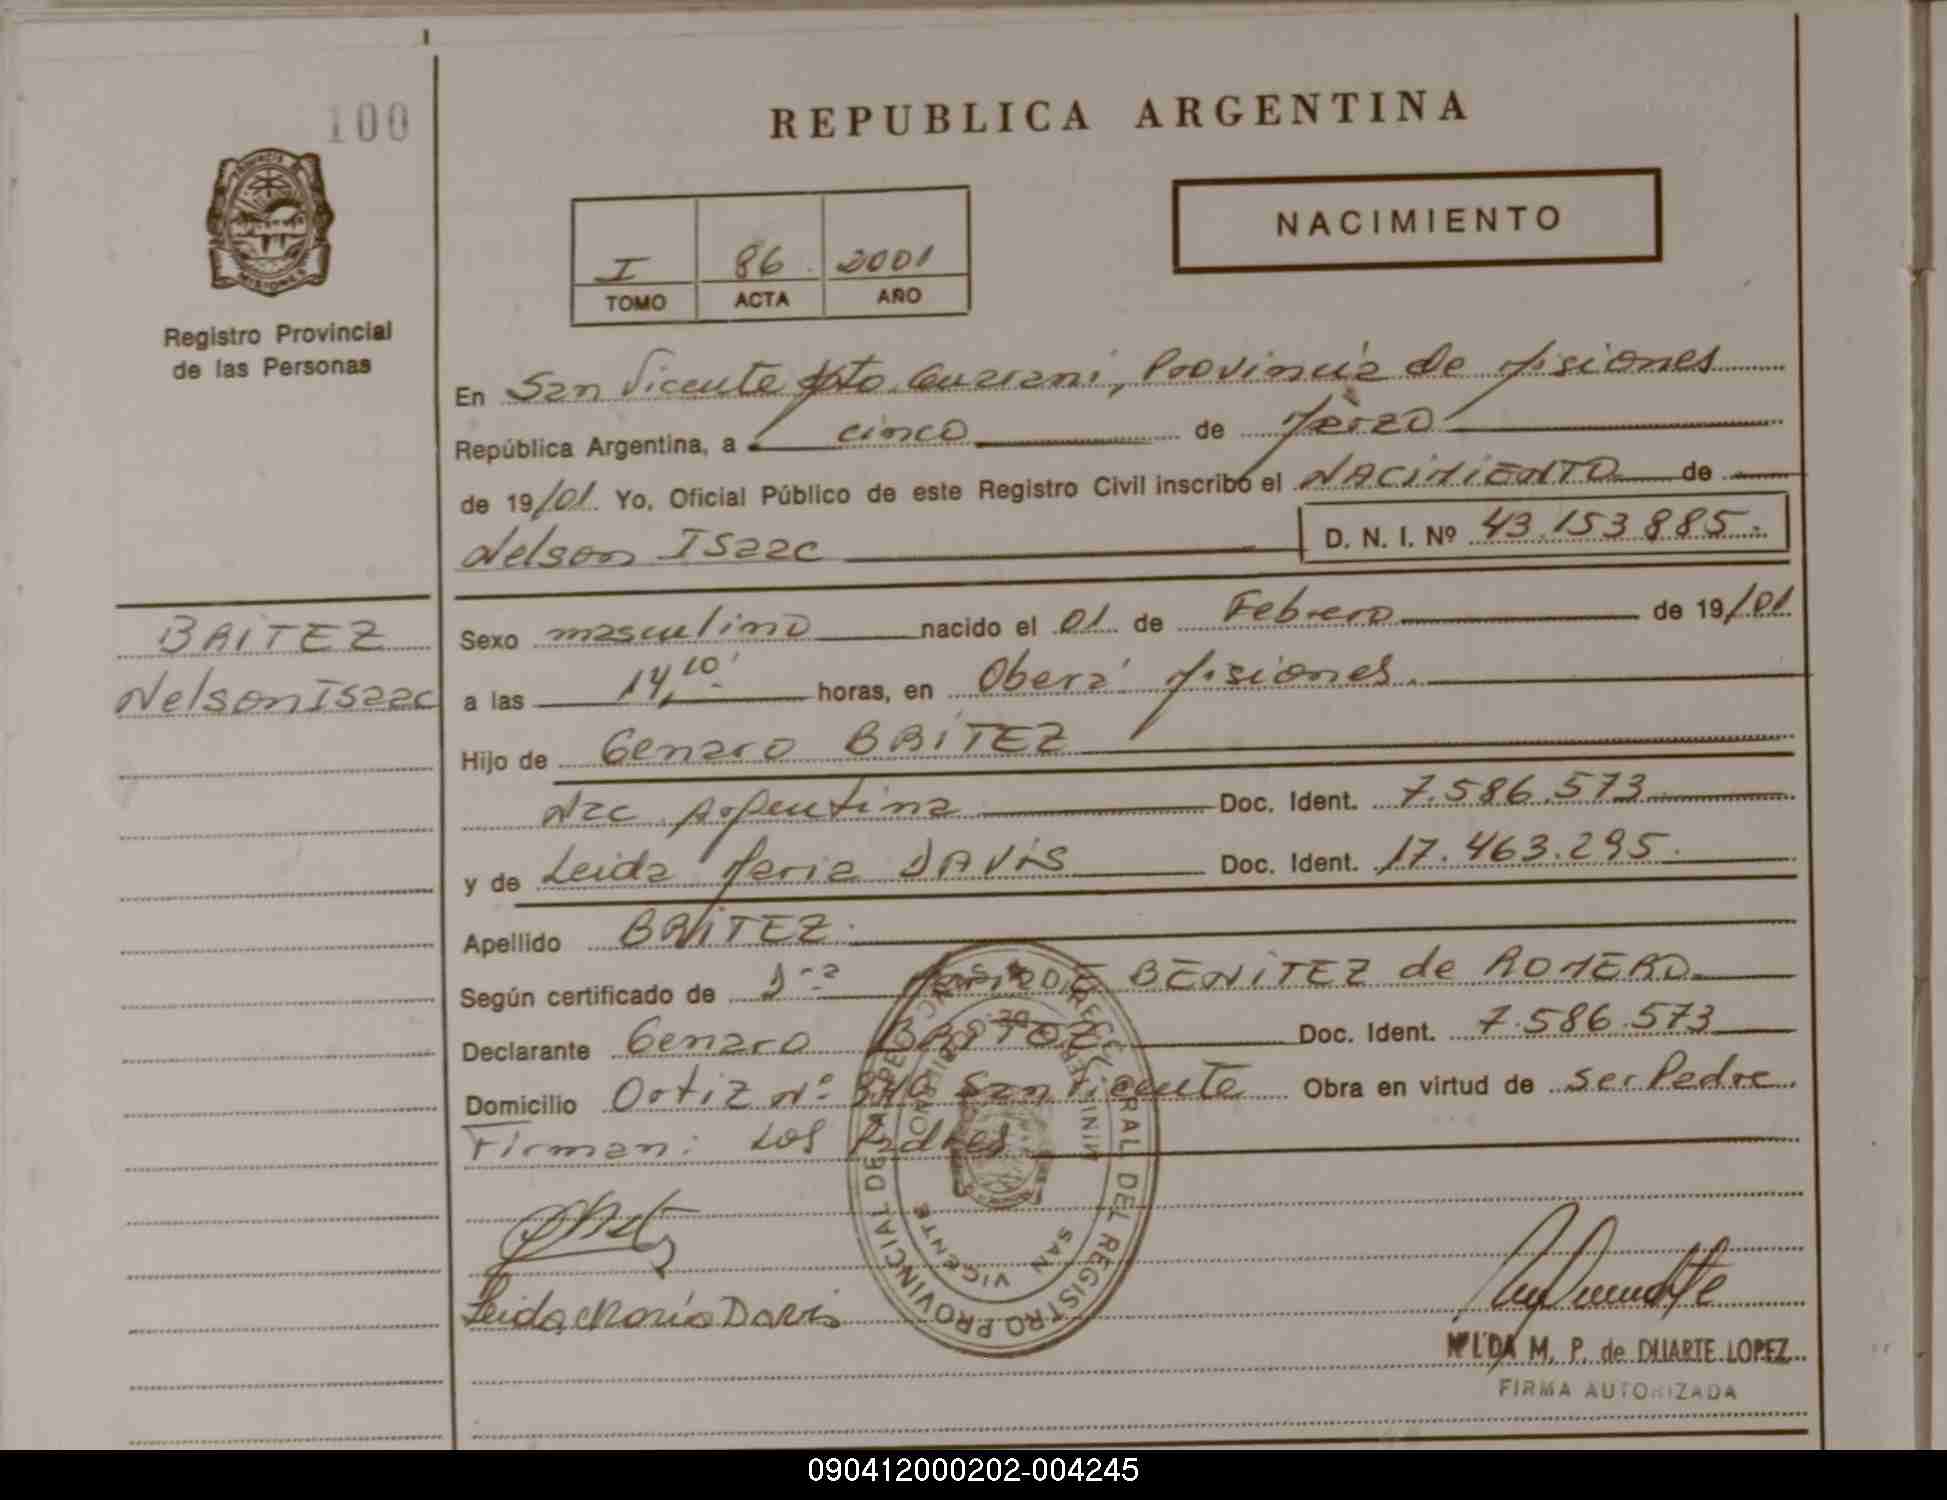 100
REPUBLICA ARGENTINA
PROVINCIA
MISIONES
Registro Provincial
de las Personas
I 86 2001
TOMO ACTA AÑO
NACIMIENTO
En San Vicente Dpto. Guarani, Provincia de Misiones
República Argentina, a cinco de Marzo
de 19/01. Yo, Oficial Público de este Registro Civil inscribo el NACIMIENTO de
Nelson Isaac D. N. I. Nº 43.153.885.-
BAITEZ
Nelson Isaac
Sexo masculino nacido el 01 de Febrero de 19/01
a las 14,10 horas, en Oberá Misiones.
Hijo de Genaro BAITEZ
Nac. Argentina Doc. Ident. 7.586.573
y de Leida Maria DAVIS Doc. Ident. 17.463.295.
Apellido BAITEZ.
Según certificado de BENITEZ de ROMERO
Declarante Genaro Doc. Ident. 7.586.573
Domicilio Ortiz Nº San Vicente Obra en virtud de ser Padre.
Firman: Los Padres
Leida Maria Davis
REGISTRO PROVINCIAL DE LAS PERSONAS
SAN VICENTE
M. P. de DUARTE LOPEZ
FIRMA AUTORIZADA
090412000202-004245